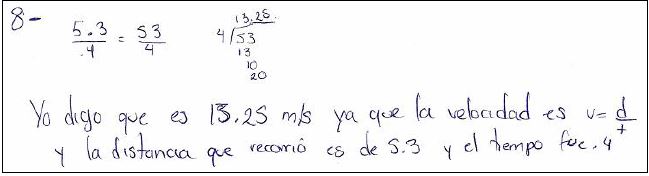 8- 5.3/.4 = 53/4 13.25 4/53
13
10
20
Yo digo que es 13.25 m/s ya que la velocidad es v= d/t
y la distancia que recorrió es de 5.3 y el tiempo fue .4